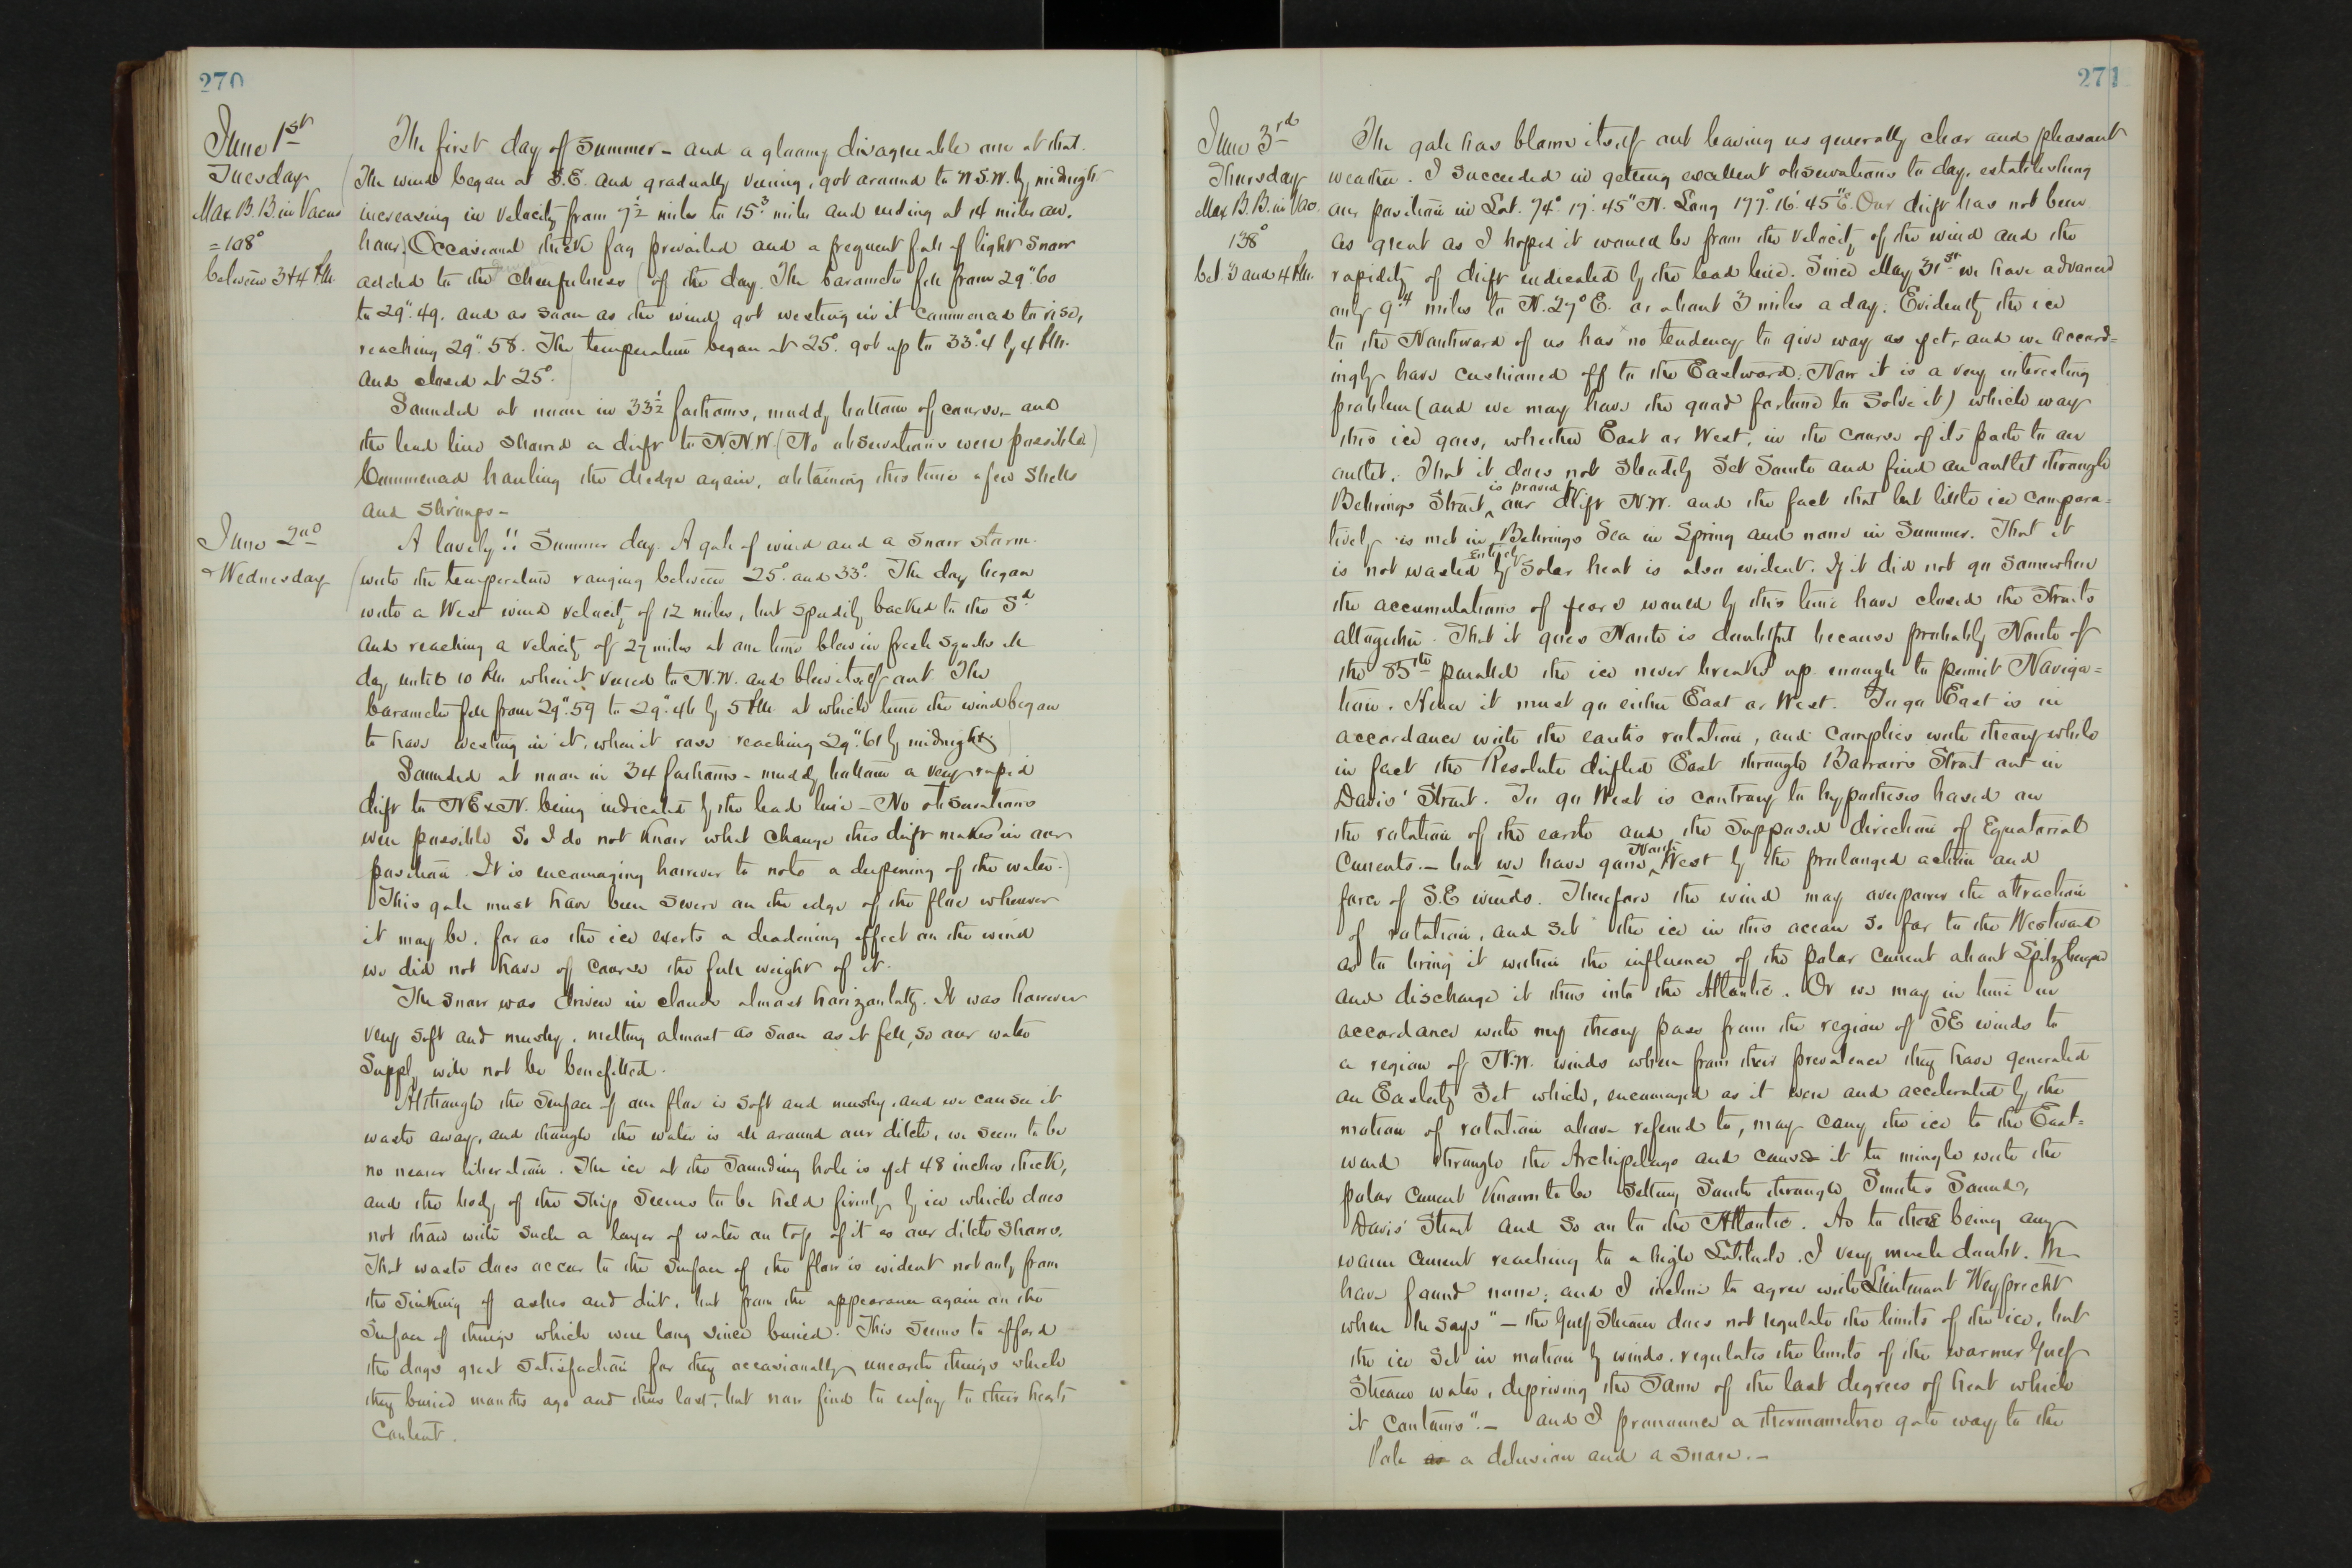 270
June 1st
Tuesday
Max. B. B. in Vacuo
= 108°
between 3 & 4 P.M.
The first day of Summer – and a gloomy disagreeable one at that.
(The wind began at S.E. and gradually veering, got around to W.S.W. by midnight
increasing in velocity from 7½ miles to 15.3 miles and ending at 14 miles an.
hour). Occasional thick fog prevailed and a frequent fall of light snow
added to the cheerfulness (of the day. The barometer fell from 29".60
to 29".49. and as soon as the wind got westing in it commenced to rise,
reaching 29".58. The temperature began at 25°. got up to 33°.4 by 4 P.M.
and closed at 25°.
Sounded at noon in 33½ fathoms, muddy bottom of course, and
the lead line showed a drift to N.N.W. (No observations were possible)
Commenced hauling the dredge again, obtaining this time a few shells
and shrimps –
June 2nd
Wednesday
A lovely!! Summer day. A gale of wind and a snow storm.
(with the temperature ranging between 25°. and 33°. The day began
with a West wind velocity of 12 miles, but speedily backed to the Sd
and reaching a velocity of 27 miles at one time blew in fresh squalls all
day until 10 P.M. when it veered to N.W. and blew itself out. The
barometer fell from 29".59 to 29".46 by 5 P.M. at which time the wind began
to have westing in it, when it rose reaching 29".61 by midnight.)
Sounded at noon in 34 fathoms – muddy bottom a very rapid
drift to NE x N. being indicated by the lead line – No observations
were possible So I do not know what change this drift makes in our
position. It is encouraging however to note a deepening of the water.)
This gale must have been severe on the edge of the floe wherever
it may be, for as the ice exerts a deadening effect on the wind
we did not have of course the full weight of it.
The snow was driven in clouds almost horizontally. It was however
very soft and mushy, melting almost as soon as it fell, so our water
Supply will not be benefitted.
Although the surface of our floe is soft and mushy, and we can see it
waste away, and though the water is all around our ditch, we seem to be
no nearer liberation. The ice at the sounding hole is yet 48 inches thick,
and the body of the ship seems to be held firmly by ice which does
not thaw with such a layer of water on top of it as our ditch shows.
That waste does occur to the surface of the floe is evident not only from
the sinking of ashes and dirt, but from the appearance again on the
surface of things which were long since buried. This seems to afford
the dogs great satisfaction for they occasionally unearth things which
they buried months ago and thus lost, but now find to enjoy to their hearts
Content.
271
June 3rd
Thursday
Max B.B. in Vac.
138°
bet 3 and 4 P.M.
The gale has blown itself out leaving us generally clear and pleasant
weather. I succeeded in getting excellent observations to day, establishing
our position in Lat. 74°. 17'. 45" N. Long 177°. 16'. 45" E. Our drift has not been
as great as I hoped it would be from the velocity of the wind and the
rapidity of drift indicated by the lead line. Since May 31st we have advanced
only 9.4 miles to N. 27° E. or about 3 miles a day. Evidently the ice
to the Northward of us has no tendency to give way as yet, and we accord=
ingly have cushioned off to the Eastward. Now it is a very interesting
problem (and we may have the good fortune to solve it) which way
this ice goes, whether East or West, in the course of its path to an
outlet. That it does not steadily Set South and find an outlet through
Behrings Strait ^ is proved by our drift N.W. and the fact that but little ice compara=
tively is met in Behrings Sea in Spring and none in Summer. That it
is not wasted entirely by solar heat is also evident. If it did not go somewhere
the accumulations of years would by this time have closed the Straits
altogether. That it goes North is doubtful because probably North of
the 85th parallel the ice never breaks up enough to permit Naviga=
tion. Hence it must go either East or West. To go East is in
accordance with the earths rotation, and complies with theory while
in fact the Resolute drifted East through Barrows Strait out in
Davis' Strait. To go West is contrary to hypothesis based on
the rotation of the earth and the supposed direction of Equatorial
Currents. – but we have gone ^ North West by the prolonged action and
force of S.E winds. Therefore the wind may overpower the attraction
of rotation, and set the ice in this ocean so far to the Westward
as to bring it within the influence of the polar current about Spitzbergen
and discharge it thus into the Atlantic. Or we may in time in
accordance with my theory pass from the region of SE winds to
a region of N.W. winds where from their prevalence they have generated
an Easterly Set which, encouraged as it were and accelerated by the
motion of rotation above referred to, may carry the ice to the East=
ward through the Archipelago and cause it to mingle with the
polar current known to be setting South through Smiths Sound,
Davis' Strait and so on to the Atlantic. As to there being any
warm current reaching to a high Latitude. I very much doubt. We
have found none; and I incline to agree with Lieutenant Weyprecht
when he says "– the Gulf Stream does not regulate the limits of the ice, but
the ice set in motion by winds, regulates the limits of the warmer Gulf
Stream water, depriving the same of the last degrees of heat which
it contains". – and I pronounce a thermometric gate way to the
Pole a delusion and a snare. –